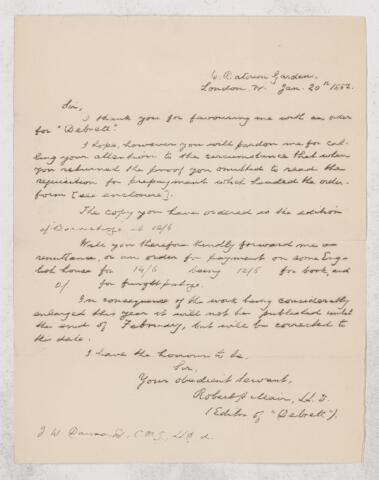 Gardens,
London, W. Jan. 20th 1882.
Sir,
I thank you for favouring me with an order
for "Debrett".
I hope however you will pardon me for cal-
ling your attention to the circumstance that when
you returned the proof you omitted to read the
requisition for prepayment which headed the order
form [see enclosure].
The copy you have ordered is the edition
of Baronetage at 12/6
Will you therefore kindly forward me a
remittance, or an order for payment on some Eng-
lish house for 14/6 being 12/6 for book, and
2/ for postage.
In consequence of the work being considerably
enlarged this year it will not be published until
the end of February, but will be corrected to
the date.
I have the honour to be,
Sir,
Your obedient Servant,
Robert H. Mair, LL.D.
(Editor of "Debrett").
J W Dawson C.M.G.,